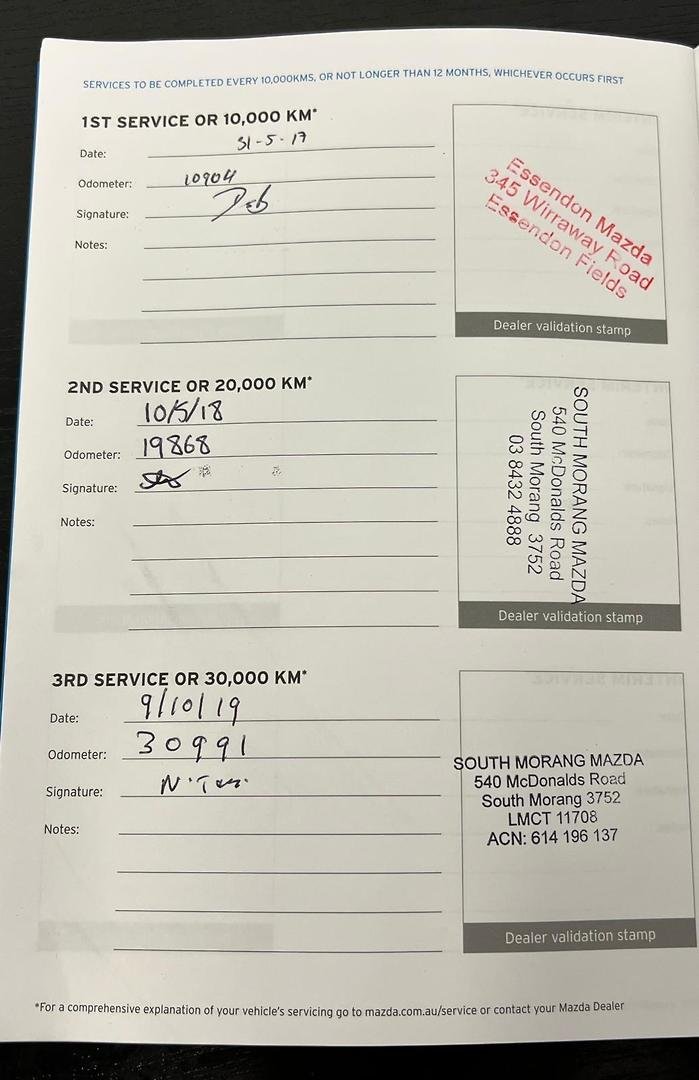 SERVICES TO BE COMPLETED EVERY 10,000KMS, OR NOT LONGER THAN 12 MONTHS, WHICHEVER OCCURS FIRST
1ST SERVICE OR 10,000 KM*
Date: 31-5-17
Odometer: 10904
Signature:
Notes:
Essendon Mazda
345 Wirraway Road
Essendon Fields
Dealer validation stamp
2ND SERVICE OR 20,000 KM*
Date: 10/5/18
Odometer: 19868
Signature:
Notes:
SOUTH MORANG MAZDA
540 McDonalds Road
South Morang 3752
03 8432 4888
Dealer validation stamp
3RD SERVICE OR 30,000 KM*
Date: 9/10/19
Odometer: 30991
Signature:
Notes:
SOUTH MORANG MAZDA
540 McDonalds Road
South Morang 3752
LMCT 11708
ACN: 614 196 137
Dealer validation stamp
*For a comprehensive explanation of your vehicle's servicing go to mazda.com.au/service or contact your Mazda Dealer